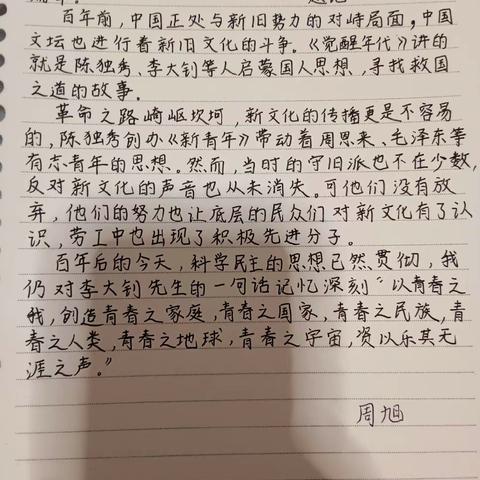 百年前,中国正处与新旧势力的对峙局面,中国
文坛也进行着新旧文化的斗争。《觉醒年代》讲的
就是陈独秀、李大钊等人启蒙国人思想,寻找救国
之道的故事。
革命之路崎岖坎坷,新文化的传播更是不容易
的,陈独秀创办《新青年》带动着周恩来、毛泽东等
有志青年的思想。然而,当时的守旧派也不在少数,
反对新文化的声音也从未消失。可他们没有放
弃,他们的努力也让底层的民众们对新文化有了认
识,劳工中也出现了积极先进分子。
百年后的今天,科学民主的思想已然贯彻,我
仍对李大钊先生的一句话记忆深刻“以青春之
我,创造青春之家庭,青春之国家,青春之民族,青
春之人类,青春之地球,青春之宇宙,资以乐其无
涯之声。”
周旭